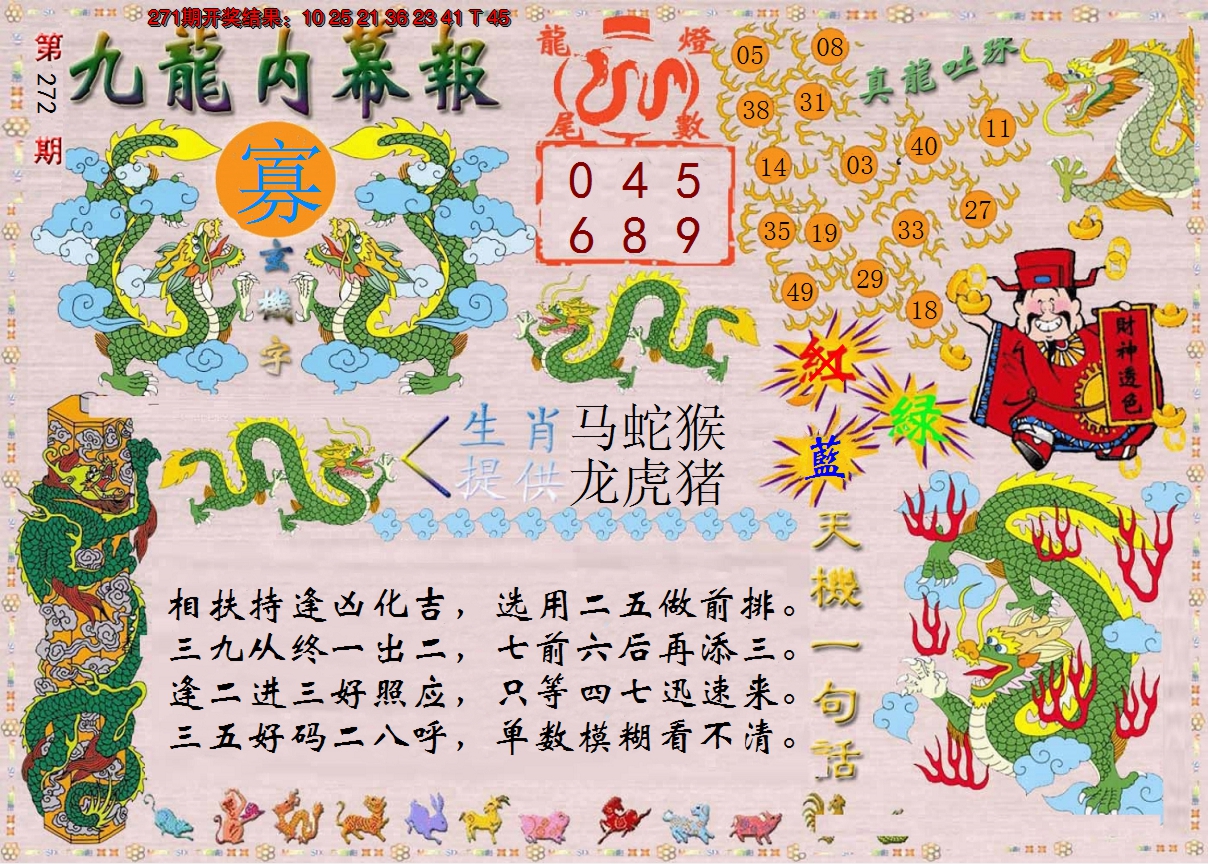 271期开奖结果：10 25 21 36 23 41 T 45
第272期
九龍内幕報
寡
玄機字
龍燈
尾數
0 4 5
6 8 9
真龍吐珠
05
08
38
31
14
03
40
11
35
19
33
27
49
29
18
財神透色
紅
綠
藍
生肖提供
马蛇猴
龙虎猪
天機一句話
相扶持逢凶化吉，选用二五做前排。
三九从终一出二，七前六后再添三。
逢二进三好照应，只等四七迅速来。
三五好码二八呼，单数模糊看不清。